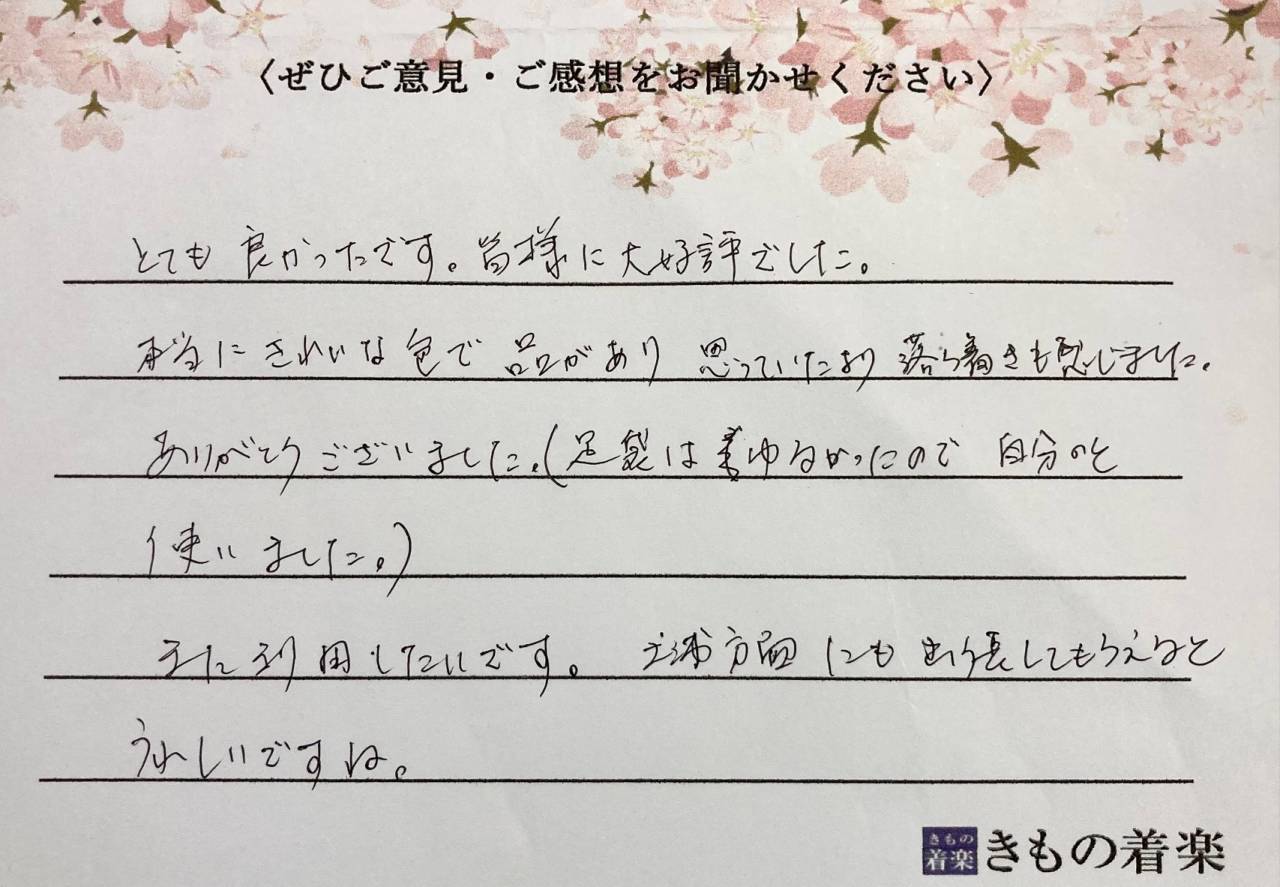 〈ぜひご意見・ご感想をお聞かせください〉
とても良かったです。皆様に大好評でした。
本当にきれいな色で品があり 思っていたより落ち着きも感じました。
ありがとうございました。(足袋はゆるかったので 自分のを
使いました。)
また利用したいです。 土浦方面にも出張してもらえると
うれしいですね。
きもの
着楽
きもの着楽